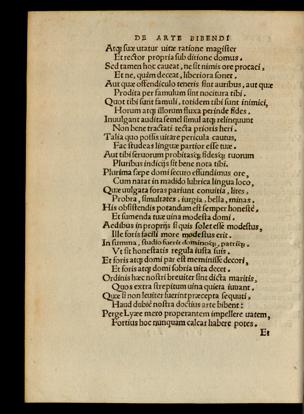 DE ARTE BIBENDI
Atq; suæ utatur uitæ ratione magister
Et rector propria sub ditione domus.
Sed tamen hoc caueat, ne sit nimis ore procaci,
Et ne, quàm deceat, liberiora sonet.
Aut quæ offendiculo teneris sint auribus, aut quæ
Prodita per famulum sint nocitura tibi.
Quot tibi sunt famuli, totidem tibi sunt inimici,
Horum atq; illorum fluxa perinde fides.
Inuulgant audita semel simul atq; relinquunt
Non bene tractati tecta prioris heri.
Talia quo possis uitare pericula cautus,
Fac studeas linguæ partior esse tuæ.
Aut tibi seruorum probitasq; fidesq; tuorum
Pluribus indicijs sit bene nota tibi.
Plurima sæpe domi securo effundimus ore,
Cum natat in madido lubrica lingua loco,
Quæ uulgata foras pariunt conuitia, lites,
Probra, simultates, iurgia, bella, minas.
His obsistendis potandum est semper honestè,
Et sumenda tuæ uina modesta domi.
Aedibus in proprijs si quis solet esse modestus,
Ille foris facili more modestus erit.
In summa, studio fueris dominoq;, patriq;,
Vt sit honestatis regula iusta suis.
Et foris atq; domi par est meminisse decori,
Et foris atq; domi sobria uita decet.
Ordinis hæc nostri breuiter sint dicta maritis,
Quos extra strepitum uina quieta iuuant.
Quæ si non leuiter fuerint præcepta sequuti,
Haud dubiè nostra doctius arte bibent:
Perge Lyæe mero properantem impellere uatem,
Fortius hoc nunquam calcar habere potes.
Et